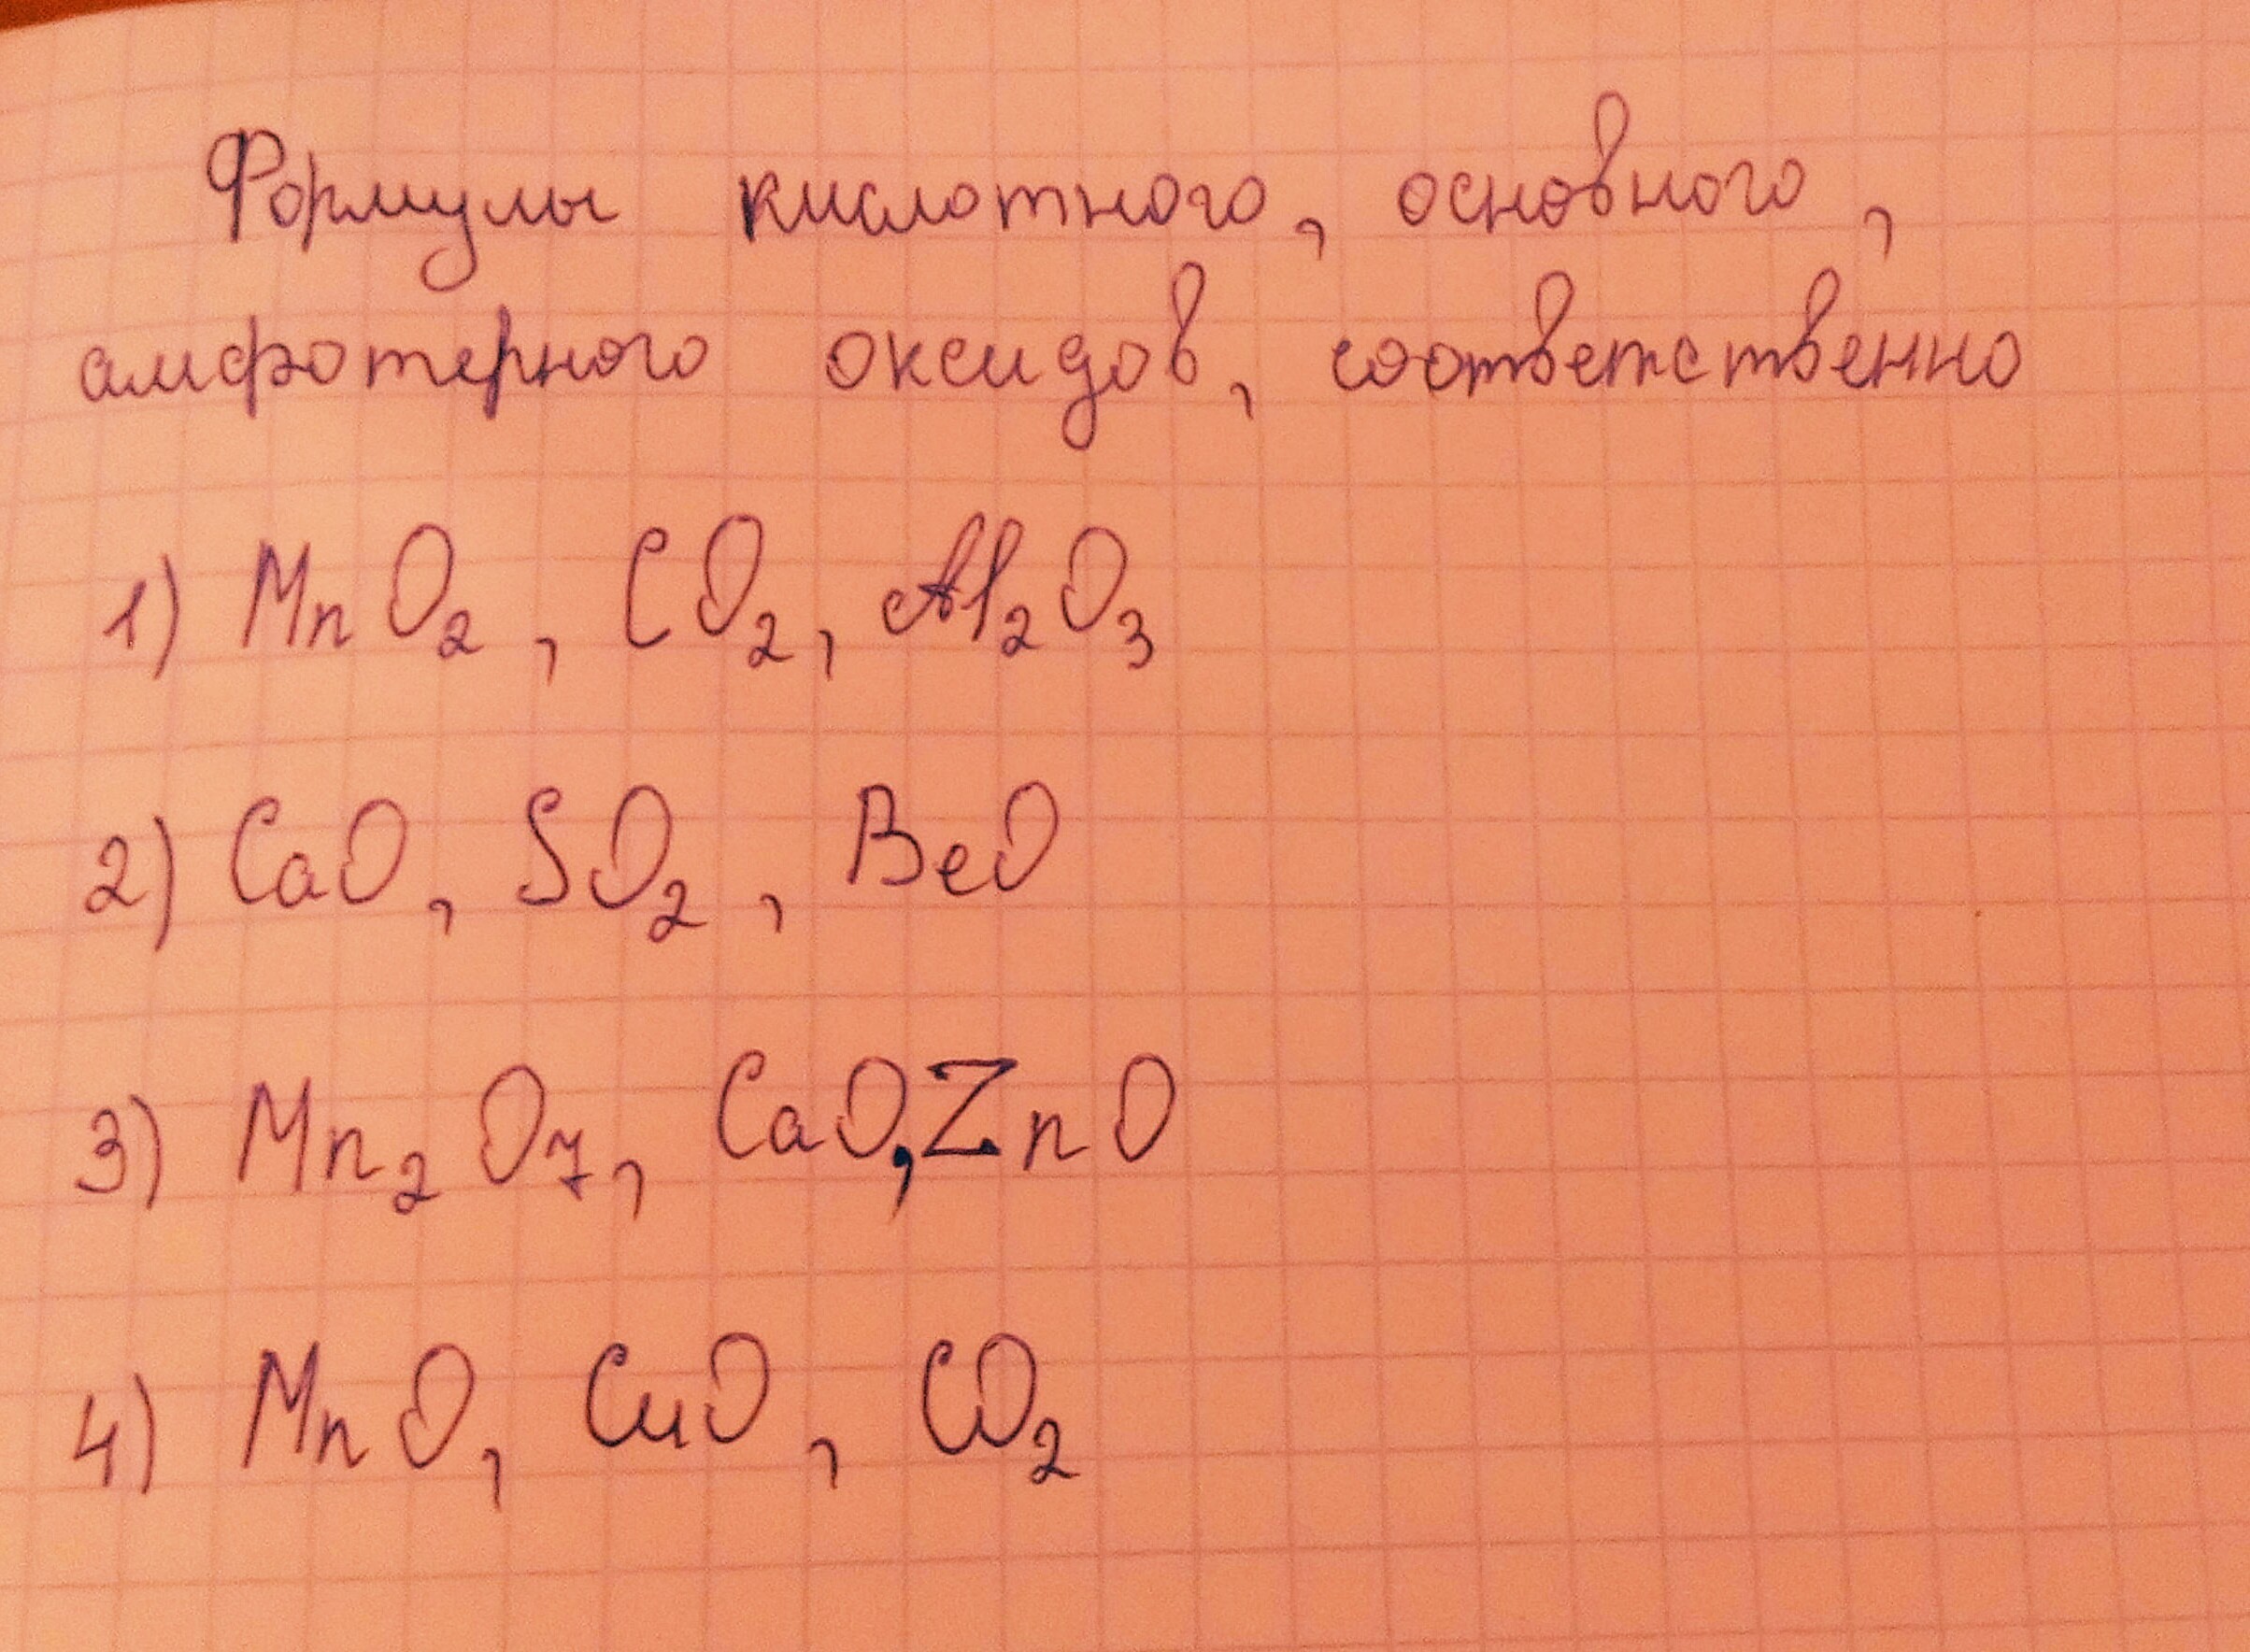 Формулы кислотного, основного,
амфотерного оксидов, соответственно
1) MnO₂, CO₂, Al₂O₃
2) CaO, SO₂, BeO
3) Mn₂O₇, CaO, ZnO
4) MnO, CuO, CO₂